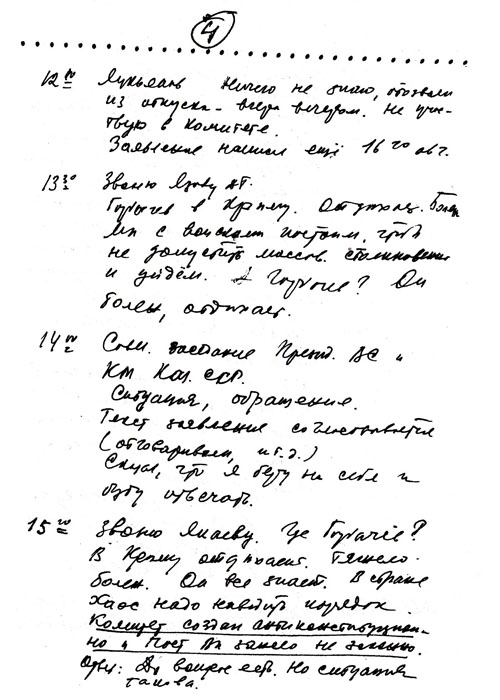 4
12 00 Лукьянов Ничего не знаю, отозвали
из отпуска - вчера вечером. Не участ-
твую в комитете.
Заявление написал ещё 16 го авг.
13 30 Звоню Язову ДТ.
Горбачев в Крыму. Отдыхает. Болен
Мы с войсками постоим, чтоб
не допустить массов. столкновения
и уйдём. А Горбачев? Он
болен, отдыхает.
14 00 Совм. заседание Презид. ВС и
КМ Каз. ССР.
Ситуация, обращение.
Текст заявления согласовывается
(отговаривали, и т.д.)
Сказал, что я беру на себя и
буду отвечать.
15 00 Звоню Янаеву. Где Горбачев?
В Крыму отдыхает. Тяжело
болен. Он все знает. В стране
Хаос надо наводить порядок.
Комитет создан антиконституцион-
но и Пост Вы заняли не законно.
Ответ: Да вопрос есть. Но ситуация
такова.